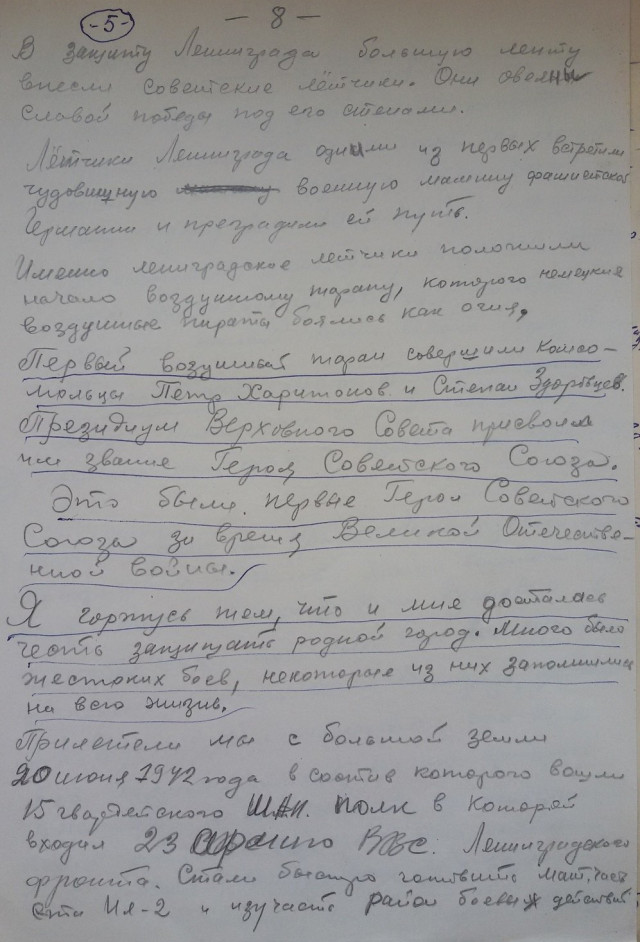 -5- - 8 -
В защиту Ленинграда большую лепту
внесли советские лётчики. Они овеяны
славой победы под его стенами.
Лётчики Ленинграда одними из первых встретили
чудовищную военную машину фашистской
Германии и преградили ей путь.
Именно ленинградские летчики положили
начало воздушному тарану, которого немецкие
воздушные пираты боялись как огня,
Первый возушный таран совершили комсо-
мольцы Петр Харитонов и Степан Здоровцев.
Президиум Верховного Совета присвоил
им звание Героя Советского Союза.
Это были первые Герои Советского
Союза за время Великой Отечестве-
нной войны.
Я горжусь тем, что и мне досталась
честь защищать родной город. Много было
жестоких боев, некоторые из них запомнились
на всю жизнь.
Прилетели мы с большой земли
20 июня 1942 года в состав которого вошли
15 гвардейского ШАП. полк в который
входил 23 ВВС. Ленинградского
фронта. Стали быстро готовить мат. часть
Ил-2 и изучать район боевых действий